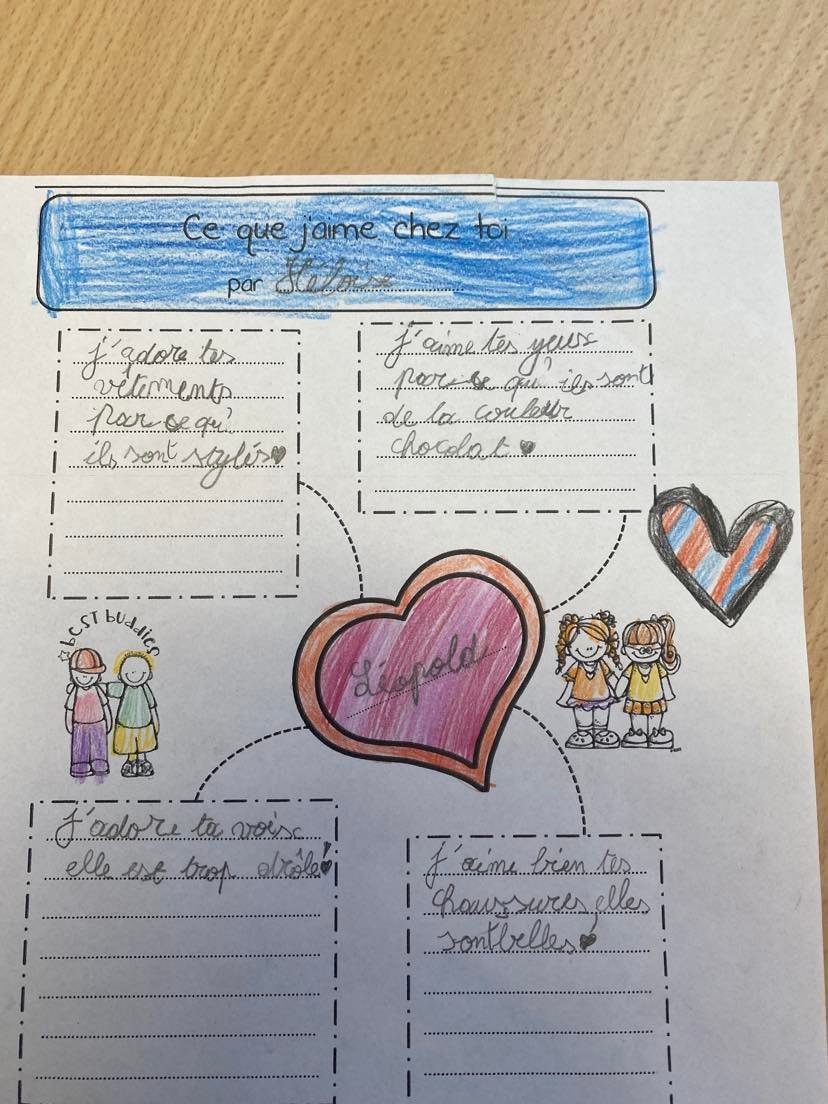 Ce que j'aime chez toi
par Héloïse
j'adore tes
vêtements
parce qu'
ils sont stylés
j'aime tes yeux
parce qu'ils sont
de la couleur
chocolat
best buddies
Léopold
j'adore ta voix
elle est trop drôle!
j'aime bien tes
chaussures, elles
sont belles!